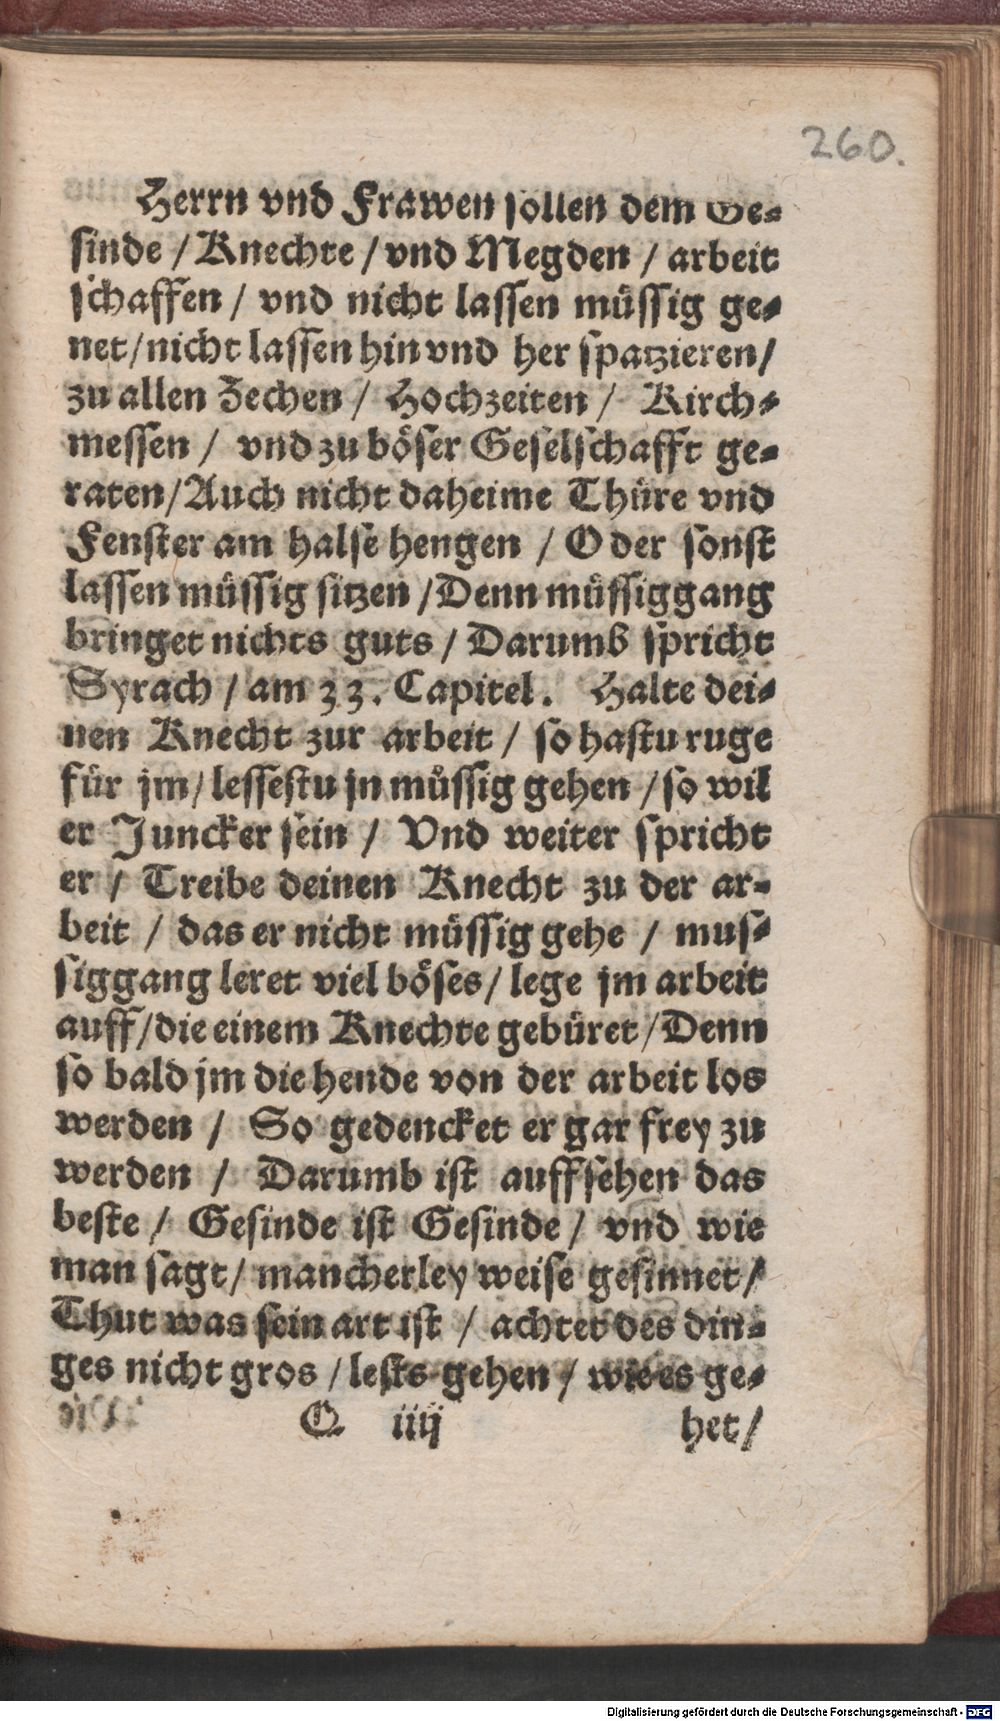 260.
Herrn vnd Frawen sollen dem Ge-
sinde / Knechte / vnd Megden / arbeit
schaffen / vnd nicht lassen müssig ge-
net / nicht lassen hin vnd her spatzieren /
zu allen Zechen / Hochzeiten / Kirch-
messen / vnd zu böser Geselschafft ge-
raten / Auch nicht daheime Thüre vnd
Fenster am halse hengen / Oder sonst
lassen müssig sitzen / Denn müssiggang
bringet nichts guts / Darumb spricht
Syrach / am 33. Capitel. Halte dei-
nen Knecht zur arbeit / so hastu ruge
für jm / lessestu jn müssig gehen / so wil
er Juncker sein / Vnd weiter spricht
er / Treibe deinen Knecht zu der ar-
beit / das er nicht müssig gehe / mus-
siggang leret viel böses / lege jm arbeit
auff / die einem Knechte gebüret / Denn
so bald jm die hende von der arbeit los
werden / So gedencket er gar frey zu
werden / Darumb ist auffsehen das
beste / Gesinde ist Gesinde / vnd wie
man sagt / mancherley weise gesinnet /
Thut was sein art ist / achtet des din-
ges nicht gros / lests gehen / wie es ge-
Q iiij het /
Digitalisierung gefördert durch die Deutsche Forschungsgemeinschaft - DFG